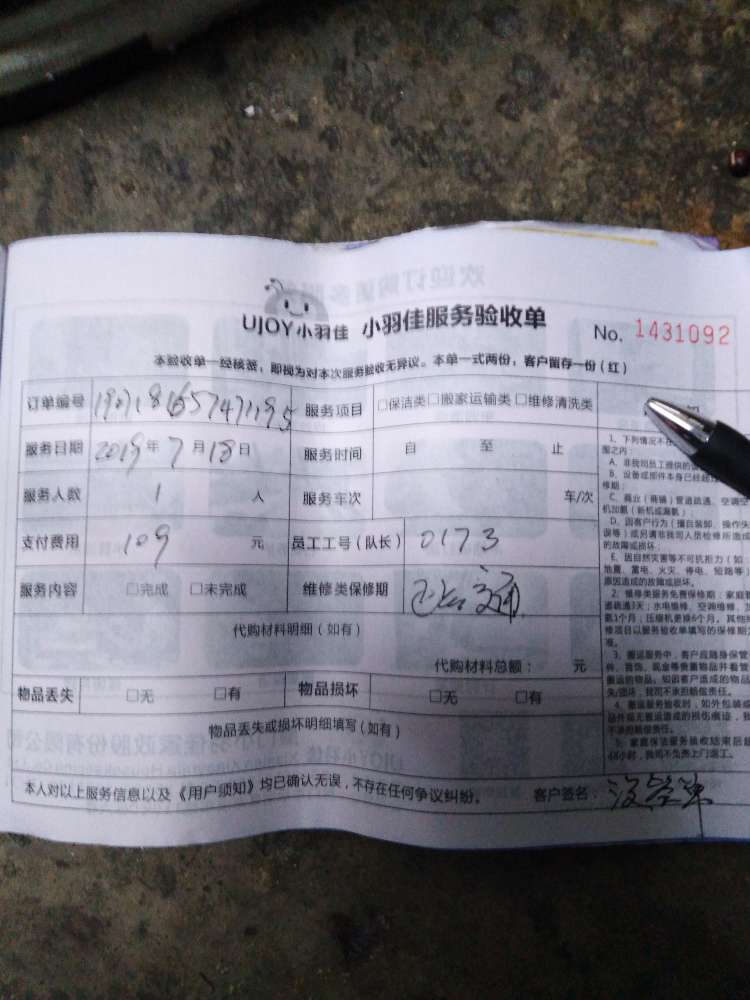 UJOY小羽佳 小羽佳服务验收单 No. 1431092
本验收单一经核签，即视为对本次服务验收无异议。本单一式两份，客户留存一份(红)
订单编号 服务项目 □保洁类□搬家运输类□维修清洗类
服务日期 2019年7月18日 服务时间 自 至 止
服务人数 1 人 服务车次 车/次
支付费用 109 元 员工工号(队长) 0173
服务内容 □完成 □未完成 维修类保修期
代购材料明细(如有)
代购材料总额： 元
物品丢失 □无 □有 物品损坏 □无 □有
物品丢失或损坏明细填写(如有)
本人对以上服务信息以及《用户须知》均已确认无误，不存在任何争议纠纷。 客户签名：
1、下列情况不在
围之内：
A、非我司员工提供的
B、设备或部件本身已经超
修期；
C、商业（商铺）管道疏通、空调空
机加氨（新机或漏氨）；
D、因客户行为（擅自装卸、操作失
误等）或另请非我司人员检修所造成
的故障或损坏；
E、因自然灾害等不可抗拒力（如
地震、雷电、火灾、停电、短路等）
原因造成的故障或损坏。
2、维修类服务免费保修期：家庭管
道疏通3天；水电维修、空调维修、加
氨1个月；压缩机更换6个月。其他维
修项目以服务验收单填写的保修期为
准。
3、搬运服务中，客户应随身保管
件、首饰、现金等贵重物品并看管
搬运的物品。如因客户造成的物品
失/损坏，我司不承担赔偿责任。
4、搬运服务验收时，如外包装或
品外观无搬运造成的损伤痕迹，我
不承担赔偿责任。
5、家庭保洁服务验收结束后超
48小时，我司不负责上门返工。